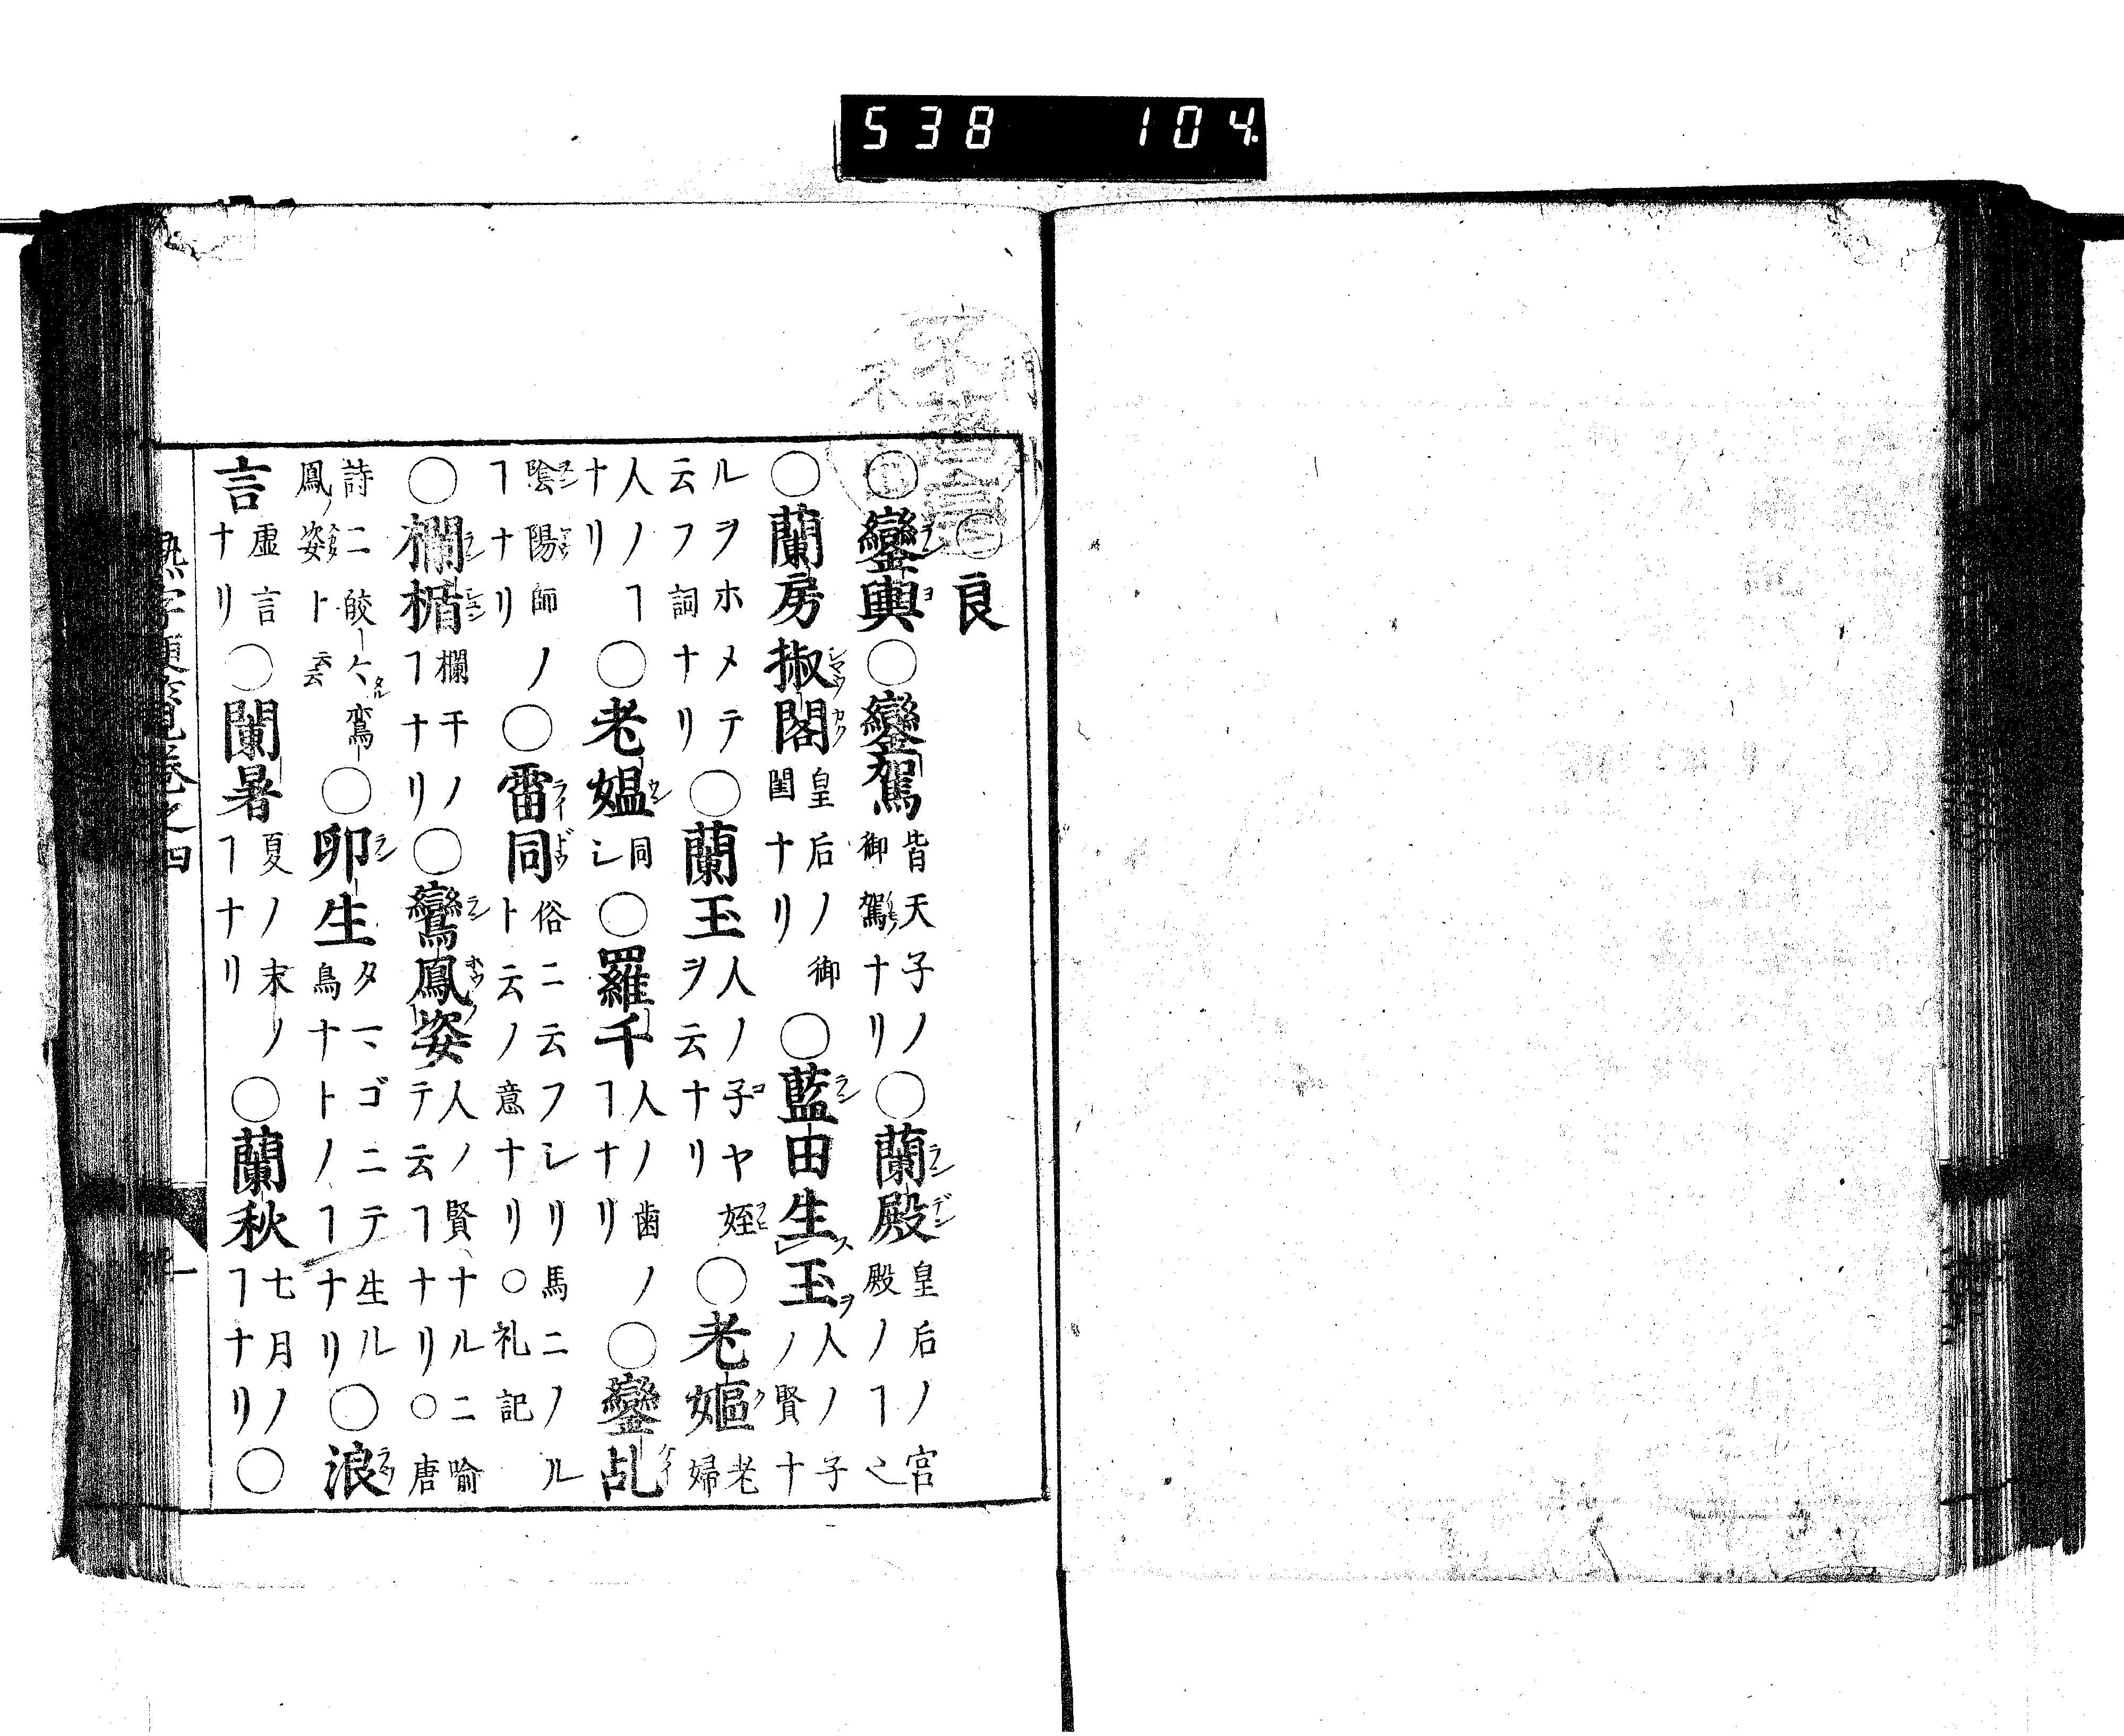 538 104
○良
○鑾輿○鑾駕皆天子ノ御駕ナリ○蘭殿皇后ノ宮殿ノヿ也
○蘭房椒閣皇后ノ御閨ナリ○藍田生玉人ノ子ノ賢ナ
ルヲホメテ云フ詞ナリ○蘭玉人ノ子ヤ姪ヲ云ナリ○老嫗老婦
人ノヿナリ○老媼同シ○羅千人ノ歯ノヿナリ○鑾乩
陰陽師ノヿナリ○雷同俗ニ云フシリ馬ニノルト云ノ意ナリ○礼記
○欄楯欄干ノヿナリ○鸞鳳姿人ノ賢ナルニ喩テ云ヿナリ○唐
詩ニ皎ー々タル鸞ー鳳ノ姿ト云云○卵生タマゴニテ生ル鳥ナトノヿナリ○浪
言虚言ナリ○闌暑夏ノ末ノヿナリ○蘭秋七月ノヿナリ○